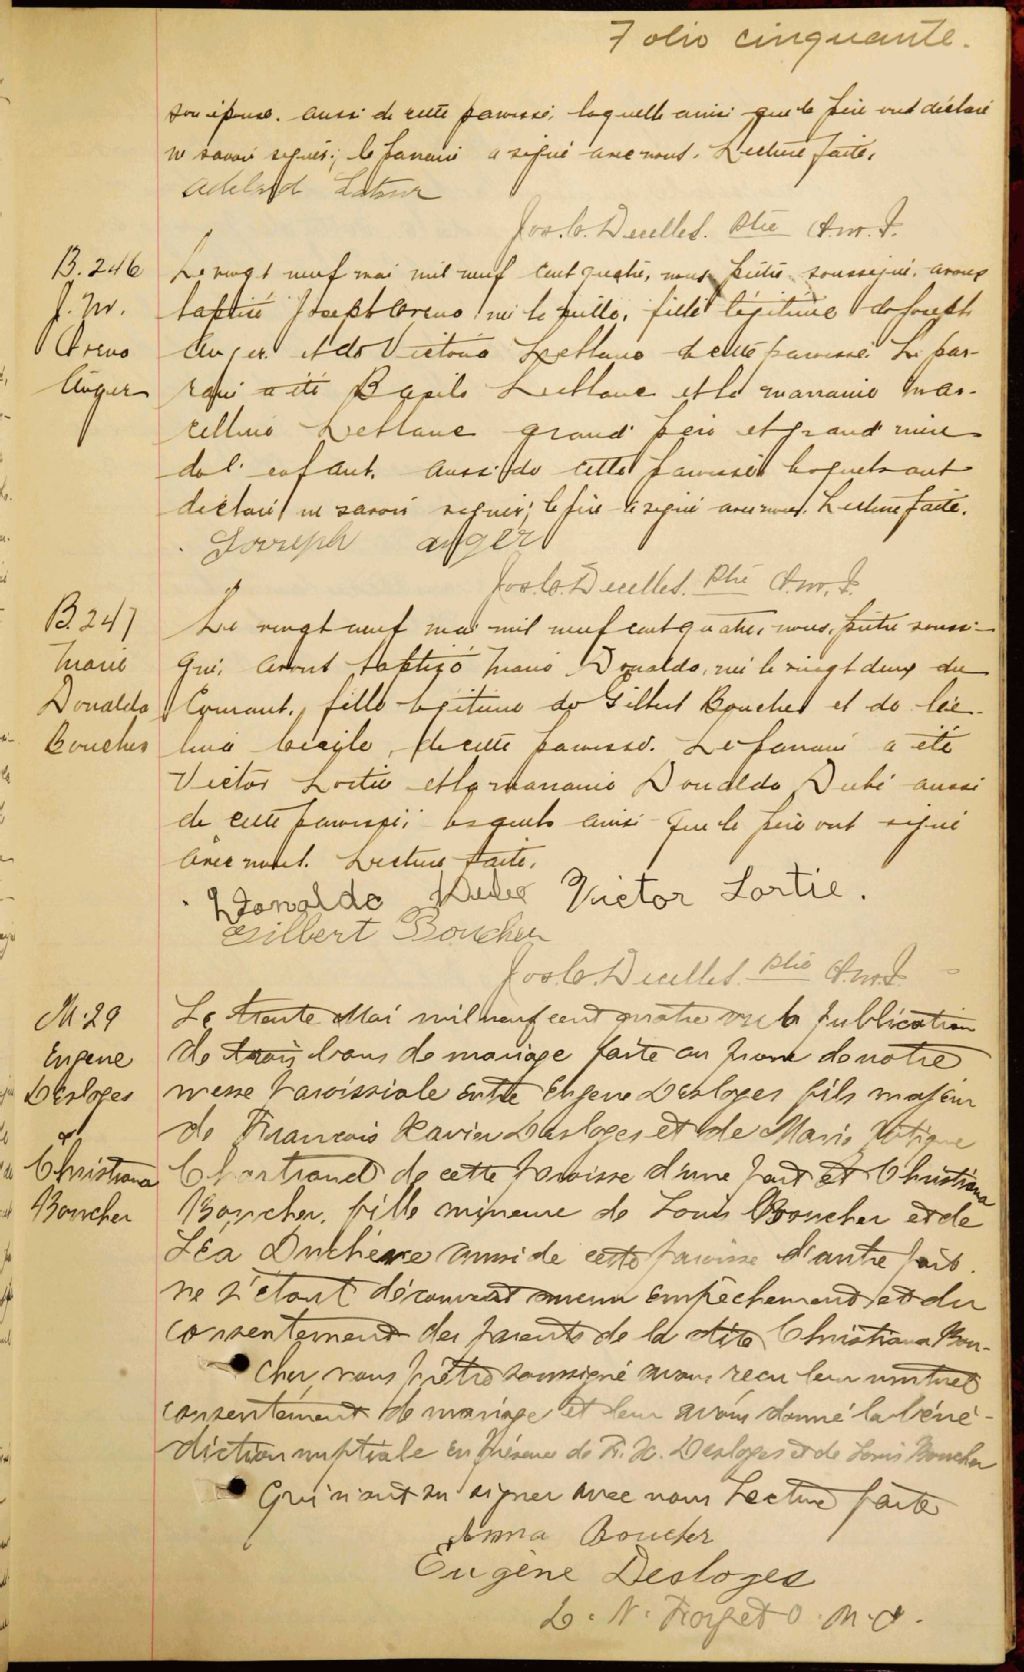 Folio cinquante.
son épouse. aussi de cette paroisse, laquelle ainsi que le père ont déclaré
ne savoir signer; le parrain a signé avec nous. Lecture faite.
Adelard Latour
Jos. C. Decelles. Ptre O.M.I.
B. 246
J. M.
Oreno
Auger
Le vingt neuf mai mil neuf cent quatre, nous prêtre soussigné, avons
baptisé Joseph Oreno né la veille, fille légitime de Joseph
Auger et de Victoria Leblanc de cette paroisse. Le par-
rain a été Basile Leblanc et la marraine Mar-
celline Leblanc grand' père et grand' mère
de l'enfant. aussi de cette paroisse lesquels ont
déclaré ne savoir signer; le père a signé avec nous. Lecture faite.
Joseph Auger
Jos. C. Decelles. Ptre O.M.I.
B. 247
Marie
Donalda
Boucher
Le vingt neuf mai mil neuf cent quatre, nous, prêtre soussi-
gné, avons baptisé Marie Donalda, née le vingt deux du
Courant, fille légitime de Gilbert Boucher et de
Cécile, de cette paroisse. Le parrain a été
Victor Lortie et la marraine Donalda Dubé aussi
de cette paroisse; lesquels ainsi que le père ont signé
avec nous. Lecture faite.
Donalda Dubé Victor Lortie.
Gilbert Boucher
Jos. C. Decelles. Ptre O.M.I.
M. 29
Eugene
Desloges
&
Christiana
Boucher
Le trente Mai mil neuf cent quatre vu la publication
de trois bans de mariage faite au prone de notre
messe paroissiale entre Eugene Desloges fils majeur
de Francois Xavier Desloges et de Marie
Chartrand de cette paroisse d'une part et Christiana
Boucher, fille mineure de Louis Boucher et de
Léa Duchêne aussi de cette paroisse d'autre part.
ne s'étant découvert aucun empêchement et du
consentement des parents de la dite Christiana Bou-
cher, nous prêtre soussigné avons recu leur mutuel
consentement de mariage et leur avons donné la béné-
diction nuptiale en présence de F. X. Desloges et de Louis Boucher
Qui n'ont su signer avec nous Lecture faite
Anna Boucher
Eugène Desloges
L. N. Forget O.M.I.